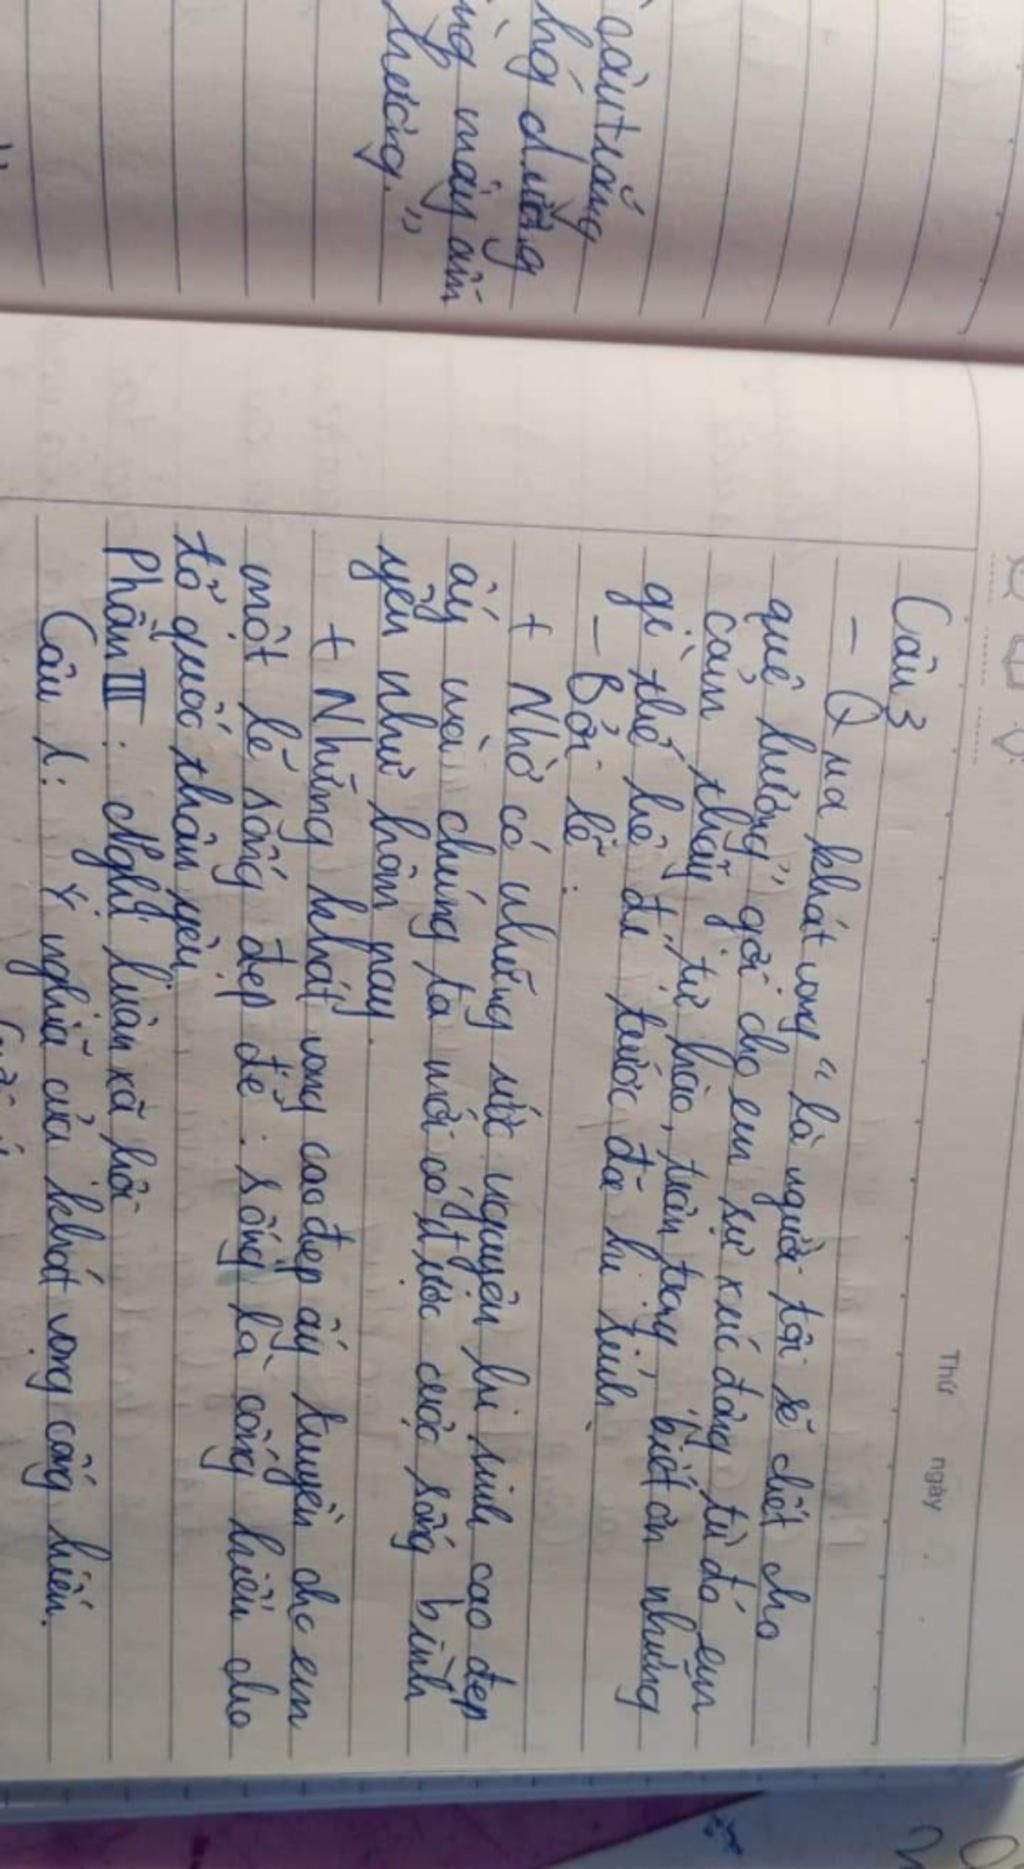 câu trắng
dưỡng
mây ấm
hương."
Thứ ngày
Câu 3
- Qua khát vọng "là người tôi sẽ chết cho
quê hương" gợi cho em sự xúc động từ đó em
cảm thấy tự hào, trân trọng, biết ơn những
gì thế hệ đi trước đã hi sinh.
- Bởi lẽ:
+ Nhờ có những ước nguyện hi sinh cao đẹp
ấy mà chúng ta mới có được cuộc sống bình
yên như hôm nay.
+ Những khát vọng cao đẹp ấy truyền cho em
một lẽ sống đẹp đẽ: sống là cống hiến cho
tổ quốc thân yêu.
Phần III: Nghị luận xã hội
Câu 1: Ý nghĩa của khát vọng cống hiến.